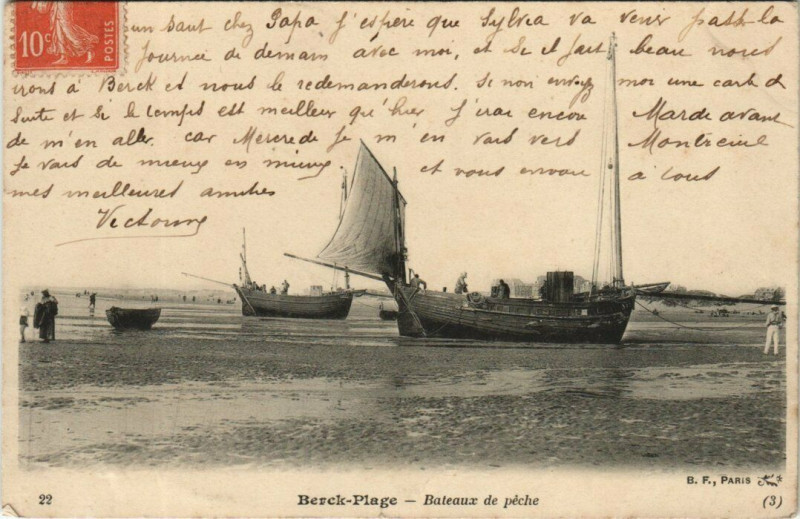 10c POSTES
un saut chez Papa j'espère que Sylvia va venir pass la
journée de demain avec moi, et si il fait beau nous
irons à Berck et nous le redemanderons. Si non envoyez moi une carte d
suite et si le temps est meilleur qu'hier j'irai encore Mardi avant
de m'en aller. car Mercredi je m'en vais vers Montreuil
je vais de mieux en mieux et vous envoie à tous
mes meilleures amitiés
Victorine
B. F., PARIS
22 Berck-Plage — Bateaux de pêche (3)